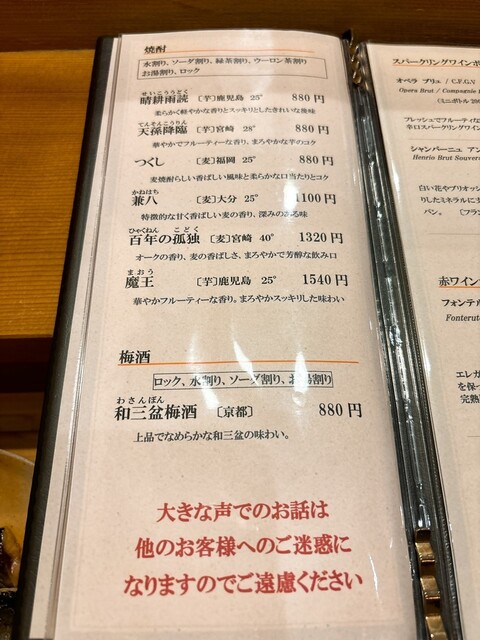 焼酎
水割り、ソーダ割り、緑茶割り、ウーロン茶割り
お湯割り、ロック
せいこううどく
晴耕雨読 〔芋〕鹿児島 25° 880円
柔らかく軽やかな香りとスッキリとしたきれいな後味
てんそんこうりん
天孫降臨 〔芋〕宮崎 28° 880円
華やかでフルーティーな香り、まろやかな芋のコク
つくし 〔麦〕福岡 25° 880円
麦焼酎らしい香ばしい風味と柔らかな口当たりとコク
かねはち
兼八 〔麦〕大分 25° 1100円
特徴的な甘く香ばしい麦の香り、深みのある味
ひゃくねん こどく
百年の孤独 〔麦〕宮崎 40° 1320円
オークの香り、麦の香ばしさ、まろやかで芳醇な飲み口
まおう
魔王 〔芋〕鹿児島 25° 1540円
華やかフルーティーな香り。まろやかスッキリした味わい
梅酒
ロック、水割り、ソーダ割り、お湯割り
わさんぼん
和三盆梅酒 〔京都〕 880円
上品でなめらかな和三盆の味わい。
大きな声でのお話は
他のお客様へのご迷惑に
なりますのでご遠慮ください
スパークリングワインボ
オペラ ブリュ / C.F.G.N
Opera Brut / Compagnie
(ミニボトル 200
フレッシュでフルーティな
辛口スパークリングワイン
シャンパーニュ アン
Henrio Brut Souver
白い花やブリオッシ
りしたミネラルに支
パン。 〔フラン
赤ワイン
フォンテル
Fonterut
エレガ
を保っ
完熟